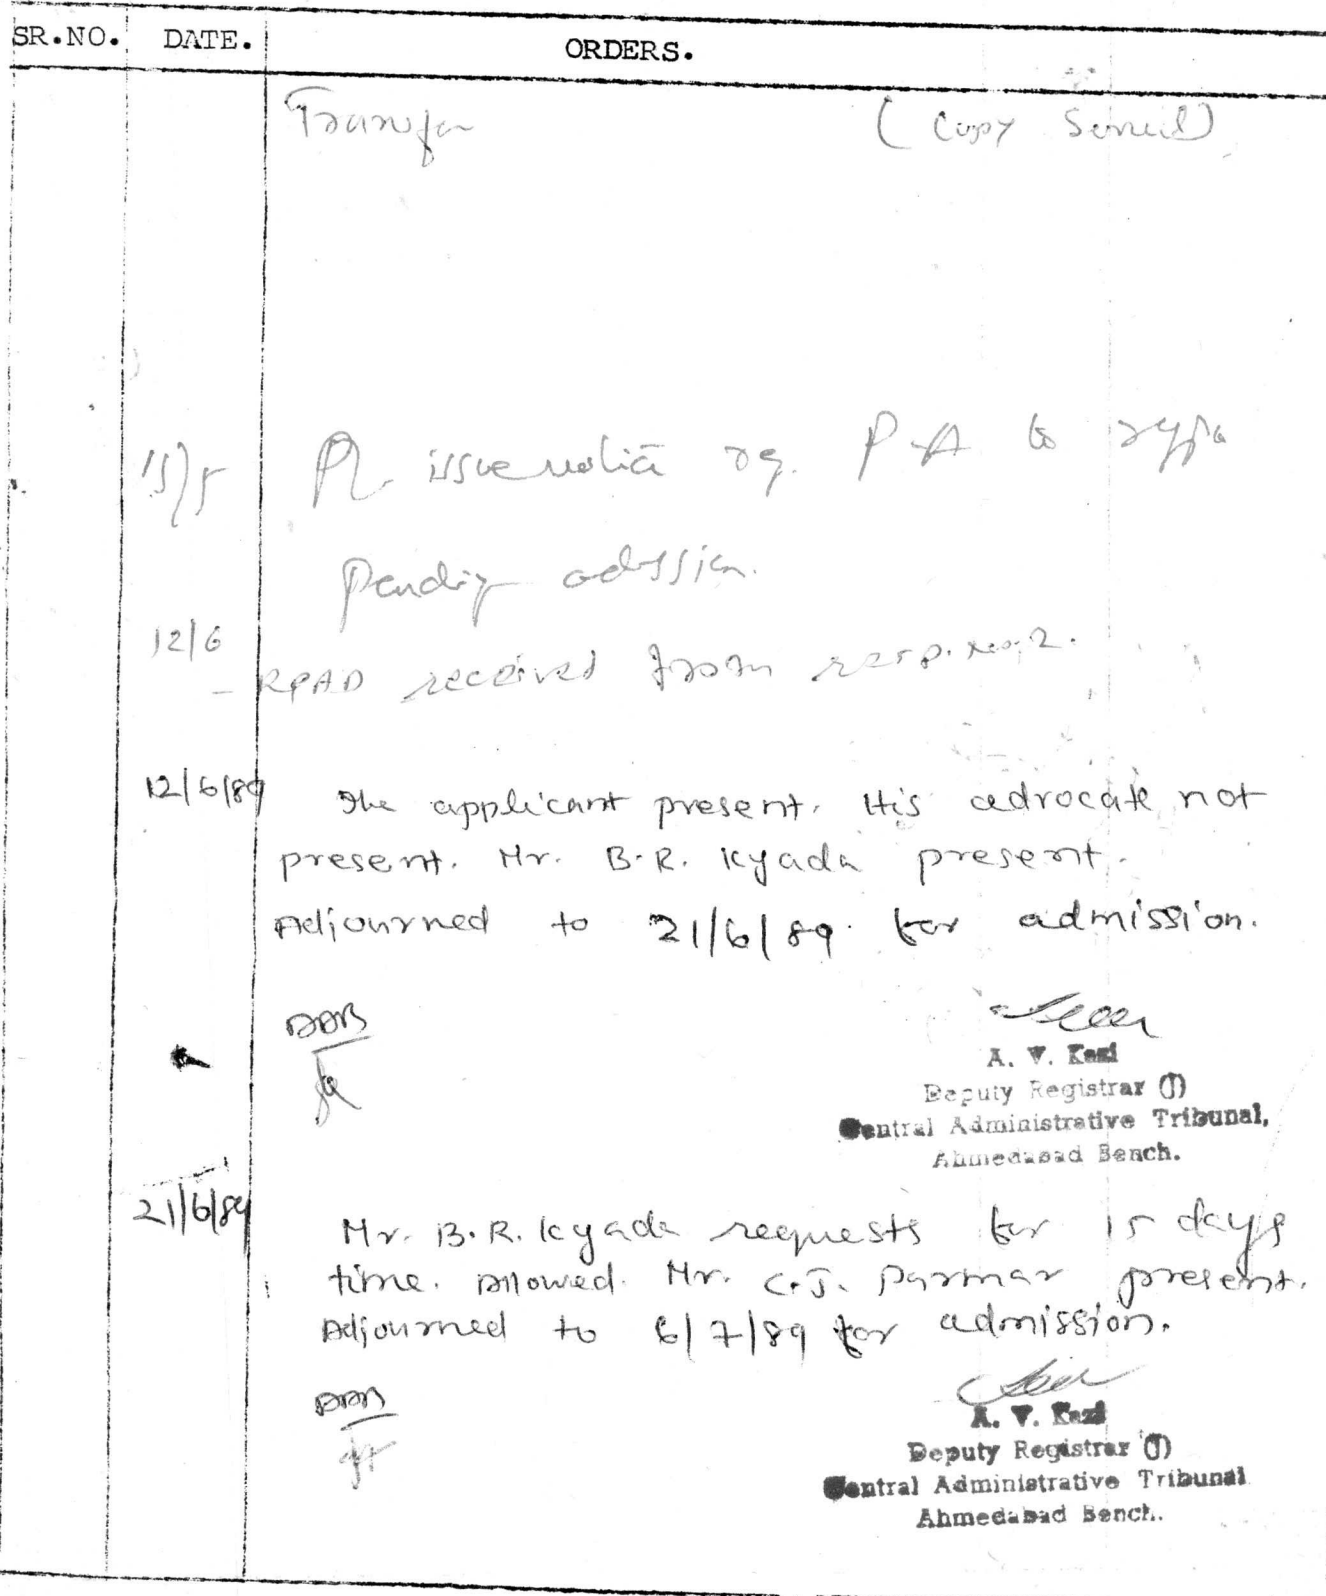 SR.NO. DATE. ORDERS.
Transfer (Copy Served)
15/5 Pl. issue notice rg. P-A to
Pending
12/6
- RPAD received from resp. no. 2.
12/6/89 The applicant present. His advocate not
present. Mr. B.R. Kyada present.
Adjourned to 21/6/89. for admission.
A. V. Kazi
Deputy Registrar (J)
Central Administrative Tribunal,
Ahmedabad Bench.
21/6/89 Mr. B.R. Kyada requests for 15 days
time. Allowed. Mr. C.J. Parmar present.
Adjourned to 6/7/89 for admission.
A. V. Kazi
Deputy Registrar (J)
Central Administrative Tribunal
Ahmedabad Bench.